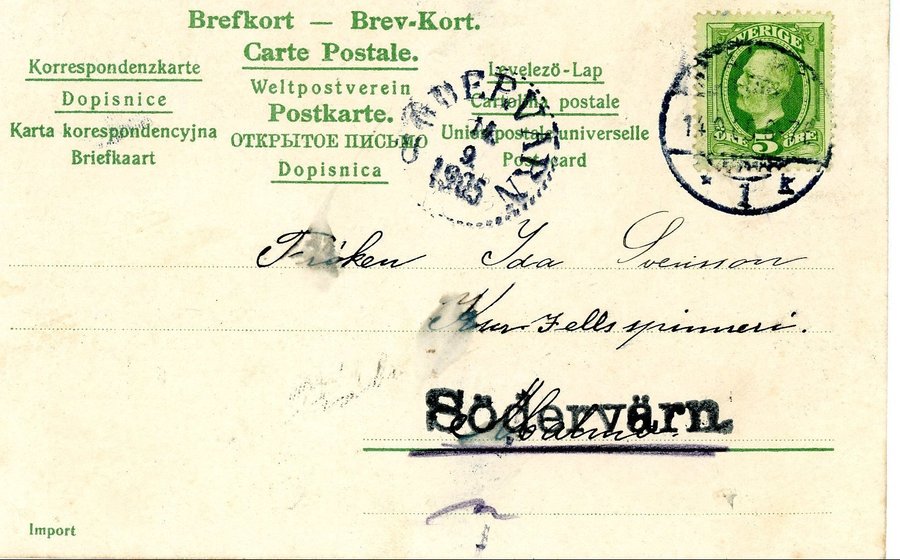 Brefkort — Brev-Kort.
Carte Postale.
Korrespondenzkarte
Weltpostverein
Levelező-Lap
Dopisnice
Postkarte.
Cartolina postale
Karta korespondencyjna
ОТКРЫТОЕ ПИСЬМО
Union postale universelle
Briefkaart
Dopisnica
Postcard
SVERIGE
5
ÖRE
SÖDERVÄRN
14
9
1905
1 K
Fröken Ida Svensson
spinneri.
Södervärn.
Malmö.
Import